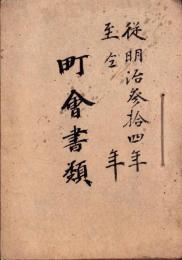 從明治参拾四年
至仝年
町會書類